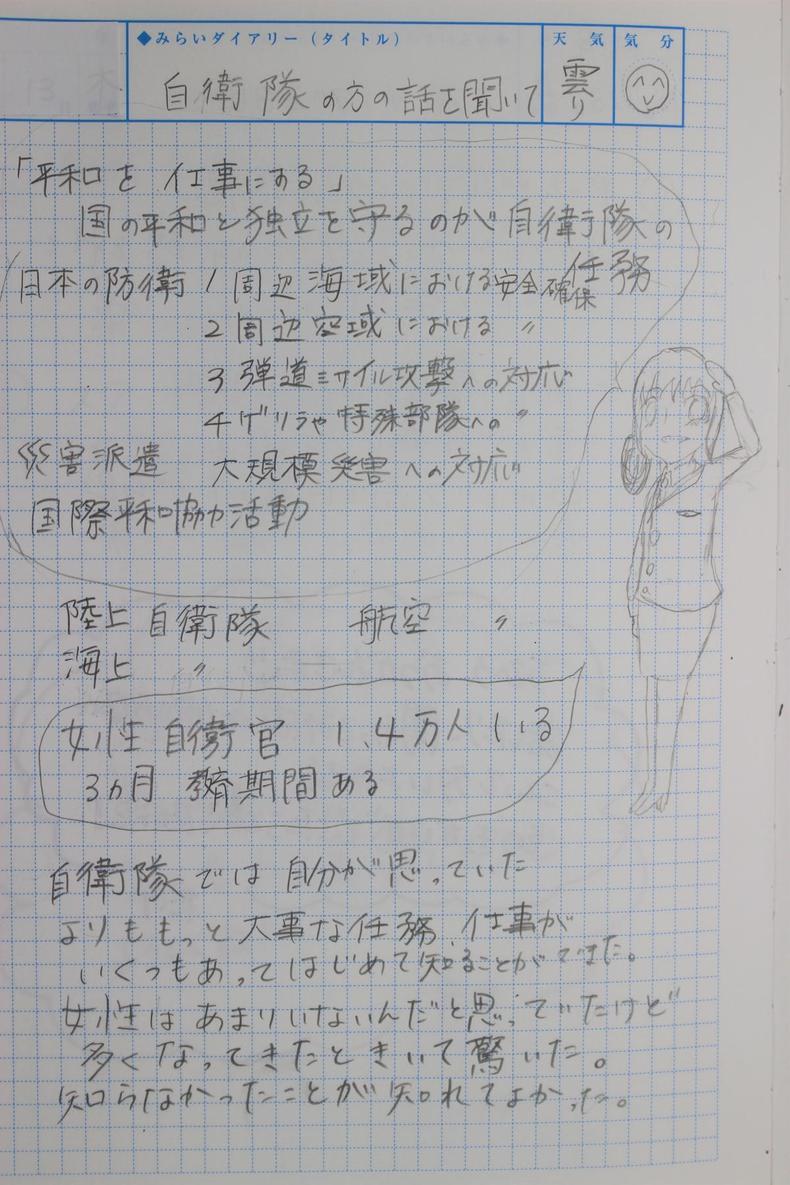 ◆みらいダイアリー(タイトル)
天気
気分
自衛隊の方の話を聞いて
雲り
「平和を仕事にする」
国の平和と独立を守るのが自衛隊の
任務
日本の防衛 1 周辺海域における安全確保
2 周辺空域における 〃
3 弾道ミサイル攻撃への対応
4 ゲリラや特殊部隊への 〃
災害派遣 大規模災害への対応
国際平和協力活動
陸上自衛隊 航空 〃
海上 〃
女性自衛官 1.4万人いる
3ヵ月 教育期間ある
自衛隊では自分が思っていた
よりももっと大事な任務、仕事が
いくつもあってはじめて知ることができた。
女性はあまりいないんだと思っていたけど
多くなってきたときいて驚いた。
知らなかったことが知れてよかった。